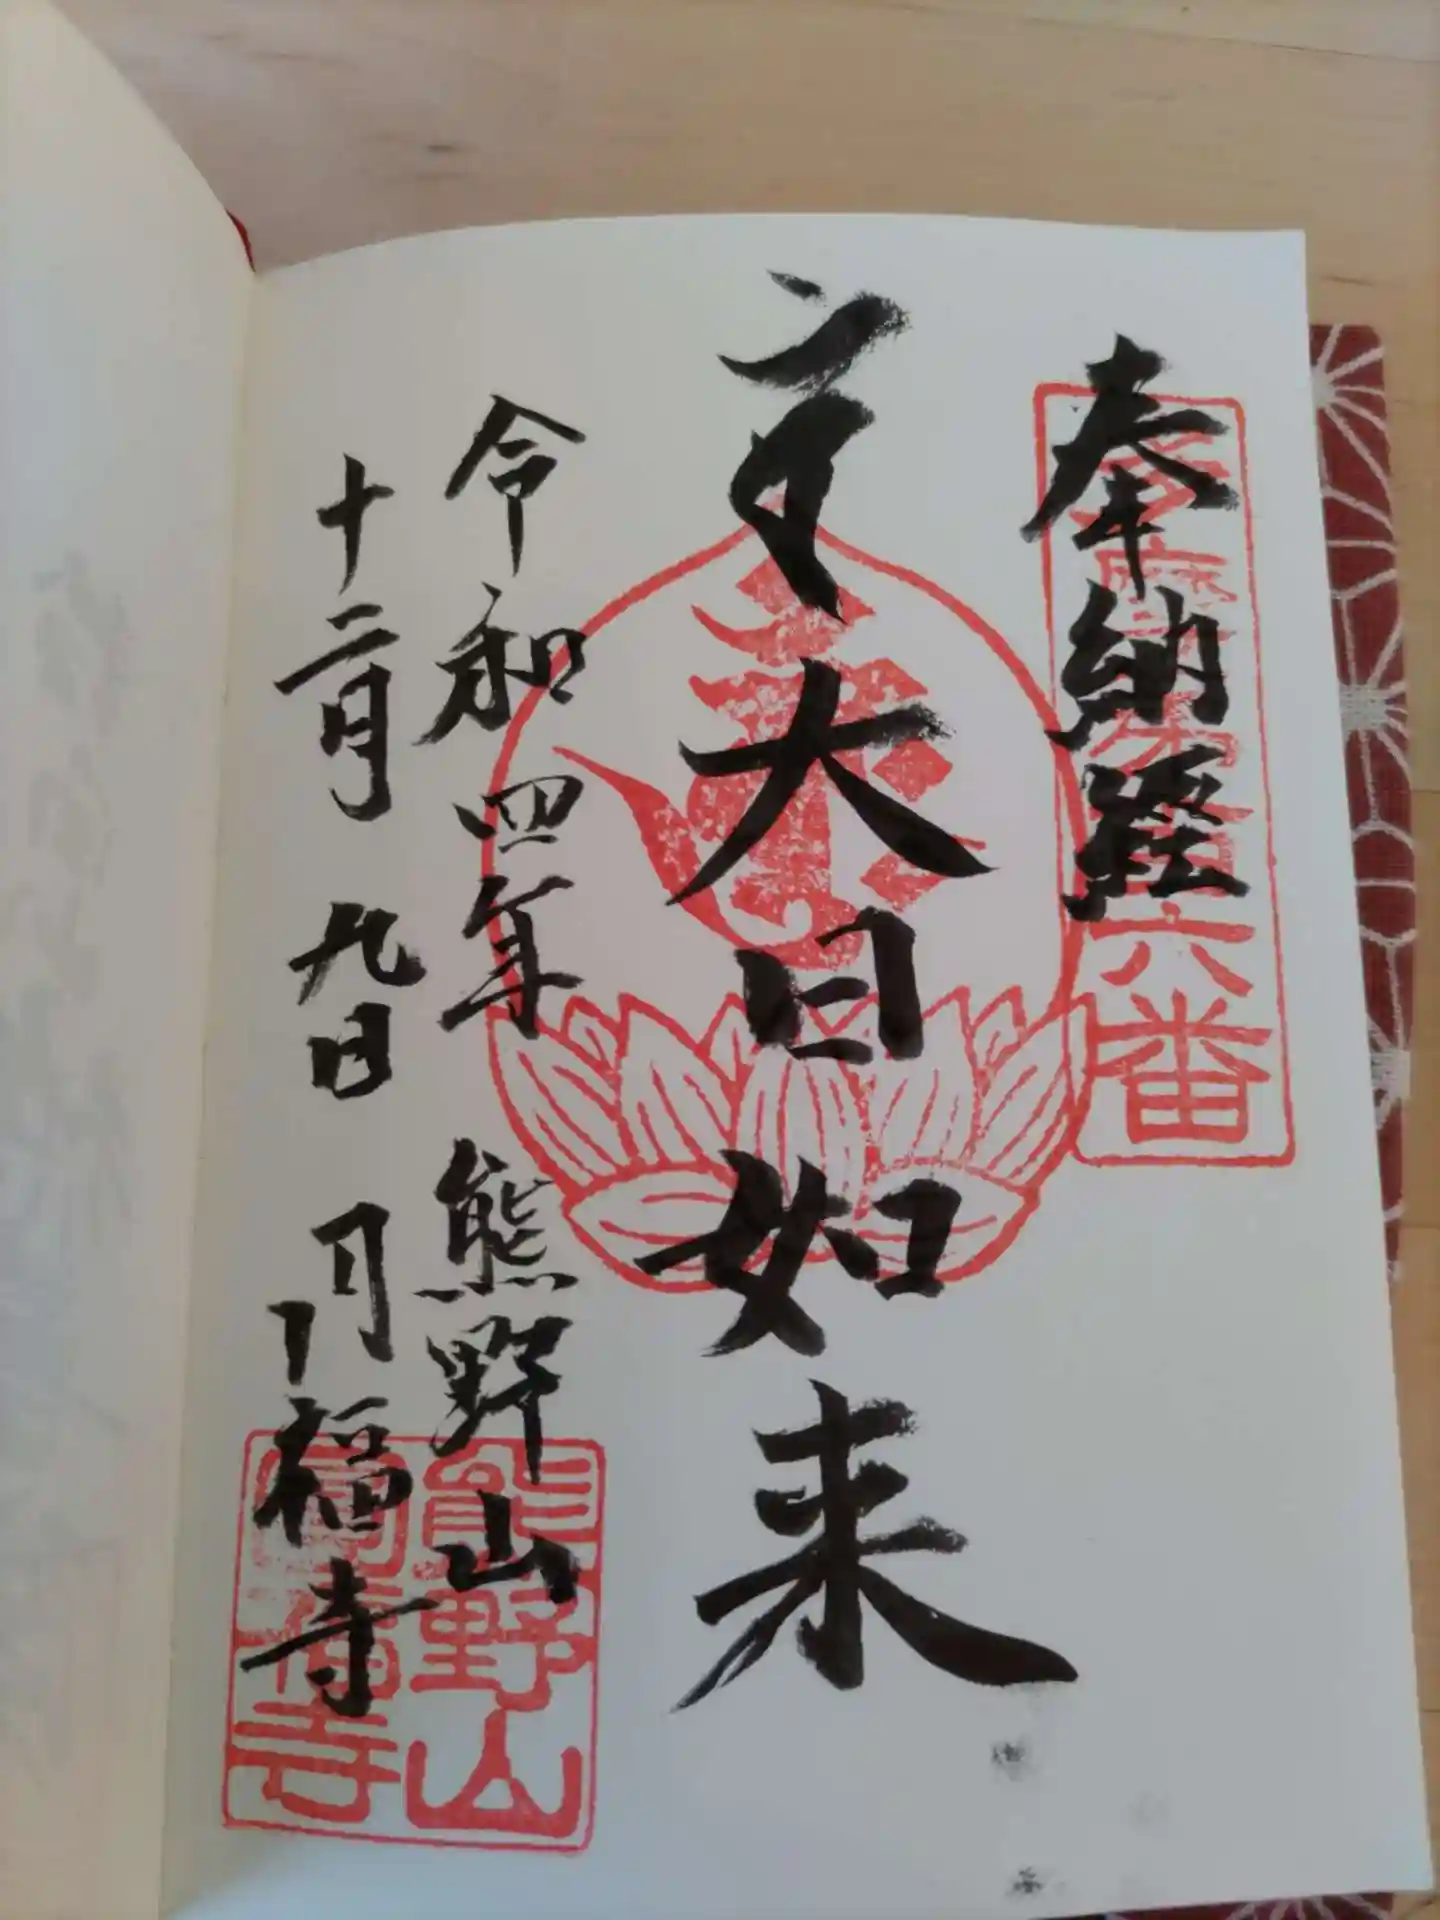 奉納経
大日如来
令和四年 熊野山
十二月 九日 福寺
六番
熊野山
福寺